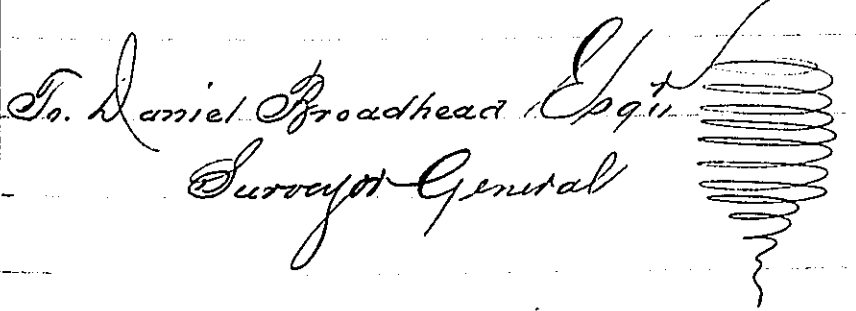 To. Daniel Broadhead, Esqr
Surveyor General